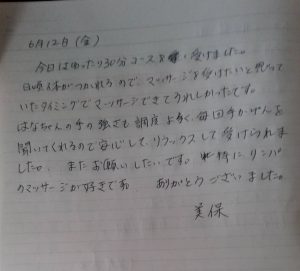 6月12日(金)
今日はゆったり30分コースを受けました。
日頃体がつかれるので、マッサージを受けたいと思って
いたタイミングでマッサージできてうれしかったです。
はなちゃんの手の強さも調度よく、毎回手かげんを
聞いてくれるので安心して、リラックスして受けられま
した。またお願いしたいです。特にリンパ
のマッサージが好きです。 ありがとうございました。
美保